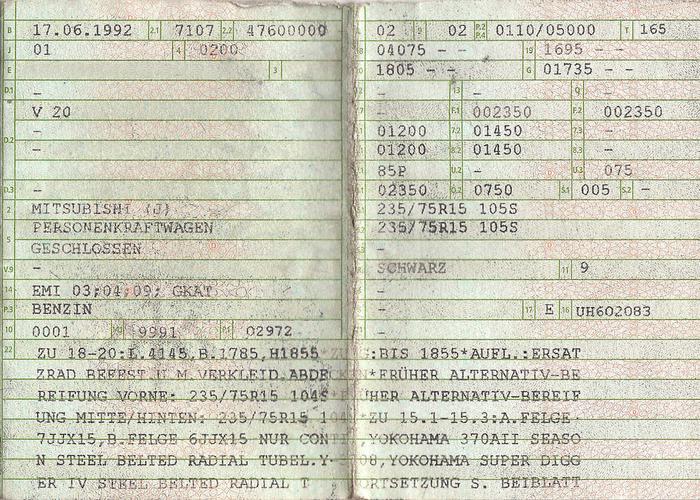 B 17.06.1992 2.1 7107 2.2 47600000
J 01 4 0200
E 3
D.1 -
V 20
-
D.2 -
D.3 -
2 MITSUBISHI (J)
PERSONENKRAFTWAGEN
5 GESCHLOSSEN
V.9 -
14 EMI 03;04;09; GKAT
P.3 BENZIN
10 0001 9991 02972
02 9 02 P.2 P.4 0110/05000 T 165
04075 - - 19 1695 - -
1805 - - G 01735 - -
- 13 - Q -
- F.1 002350 F.2 002350
01200 7.2 01450 7.3 -
01200 8.2 01450 8.3 -
85P U.2 - U.3 075
02350 O.2 0750 S.1 005 S.2 -
235/75R15 105S
235/75R15 105S
-
SCHWARZ 11 9
-
- 17 E 16 UH602083
-
22 ZU 18-20:L.4145,B.1785,H1855*ZUG:BIS 1855*AUFL.:ERSAT
ZRAD BEFEST.U.M.VERKLEID.ABDECKEN*FRÜHER ALTERNATIV-BE
REIFUNG VORNE: 235/75R15 104S* HER ALTERNATIV-BEREIF
UNG MITTE/HINTEN: 235/75R15 104S*ZU 15.1-15.3:A.FELGE
7JJX15,B.FELGE 6JJX15 NUR CONTI, YOKOHAMA 370AII SEASO
N STEEL BELTED RADIAL TUBEL.Y- 08,YOKOHAMA SUPER DIGG
ER IV STEEL BELTED RADIAL T ORTSETZUNG S. BEIBLATT